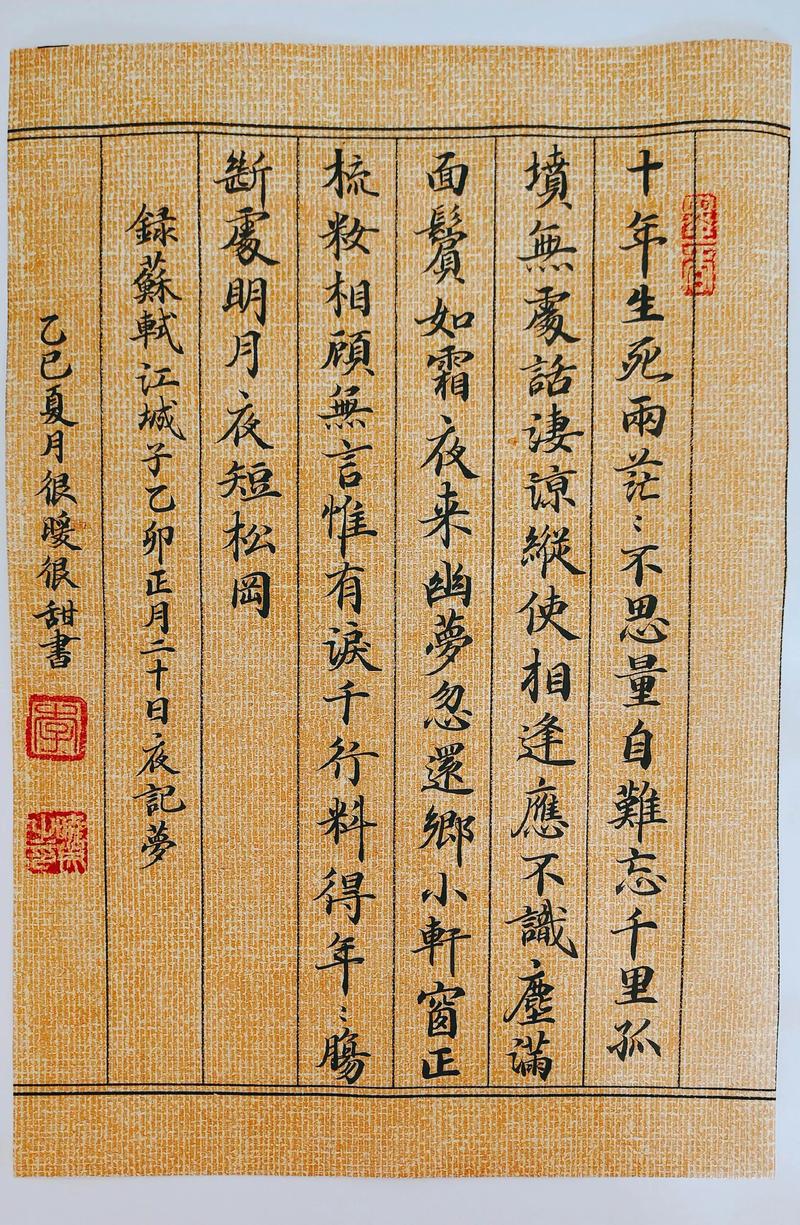 十年生死兩茫〻不思量自難忘千里孤
墳無處話淒涼縱使相逢應不識塵滿
面鬢如霜夜来幽夢忽還鄉小軒窗正
梳妝相顧無言惟有淚千行料得年〻腸
斷處明月夜短松岡
錄蘇軾江城子乙卯正月二十日夜記夢
乙巳夏月很暖很甜書